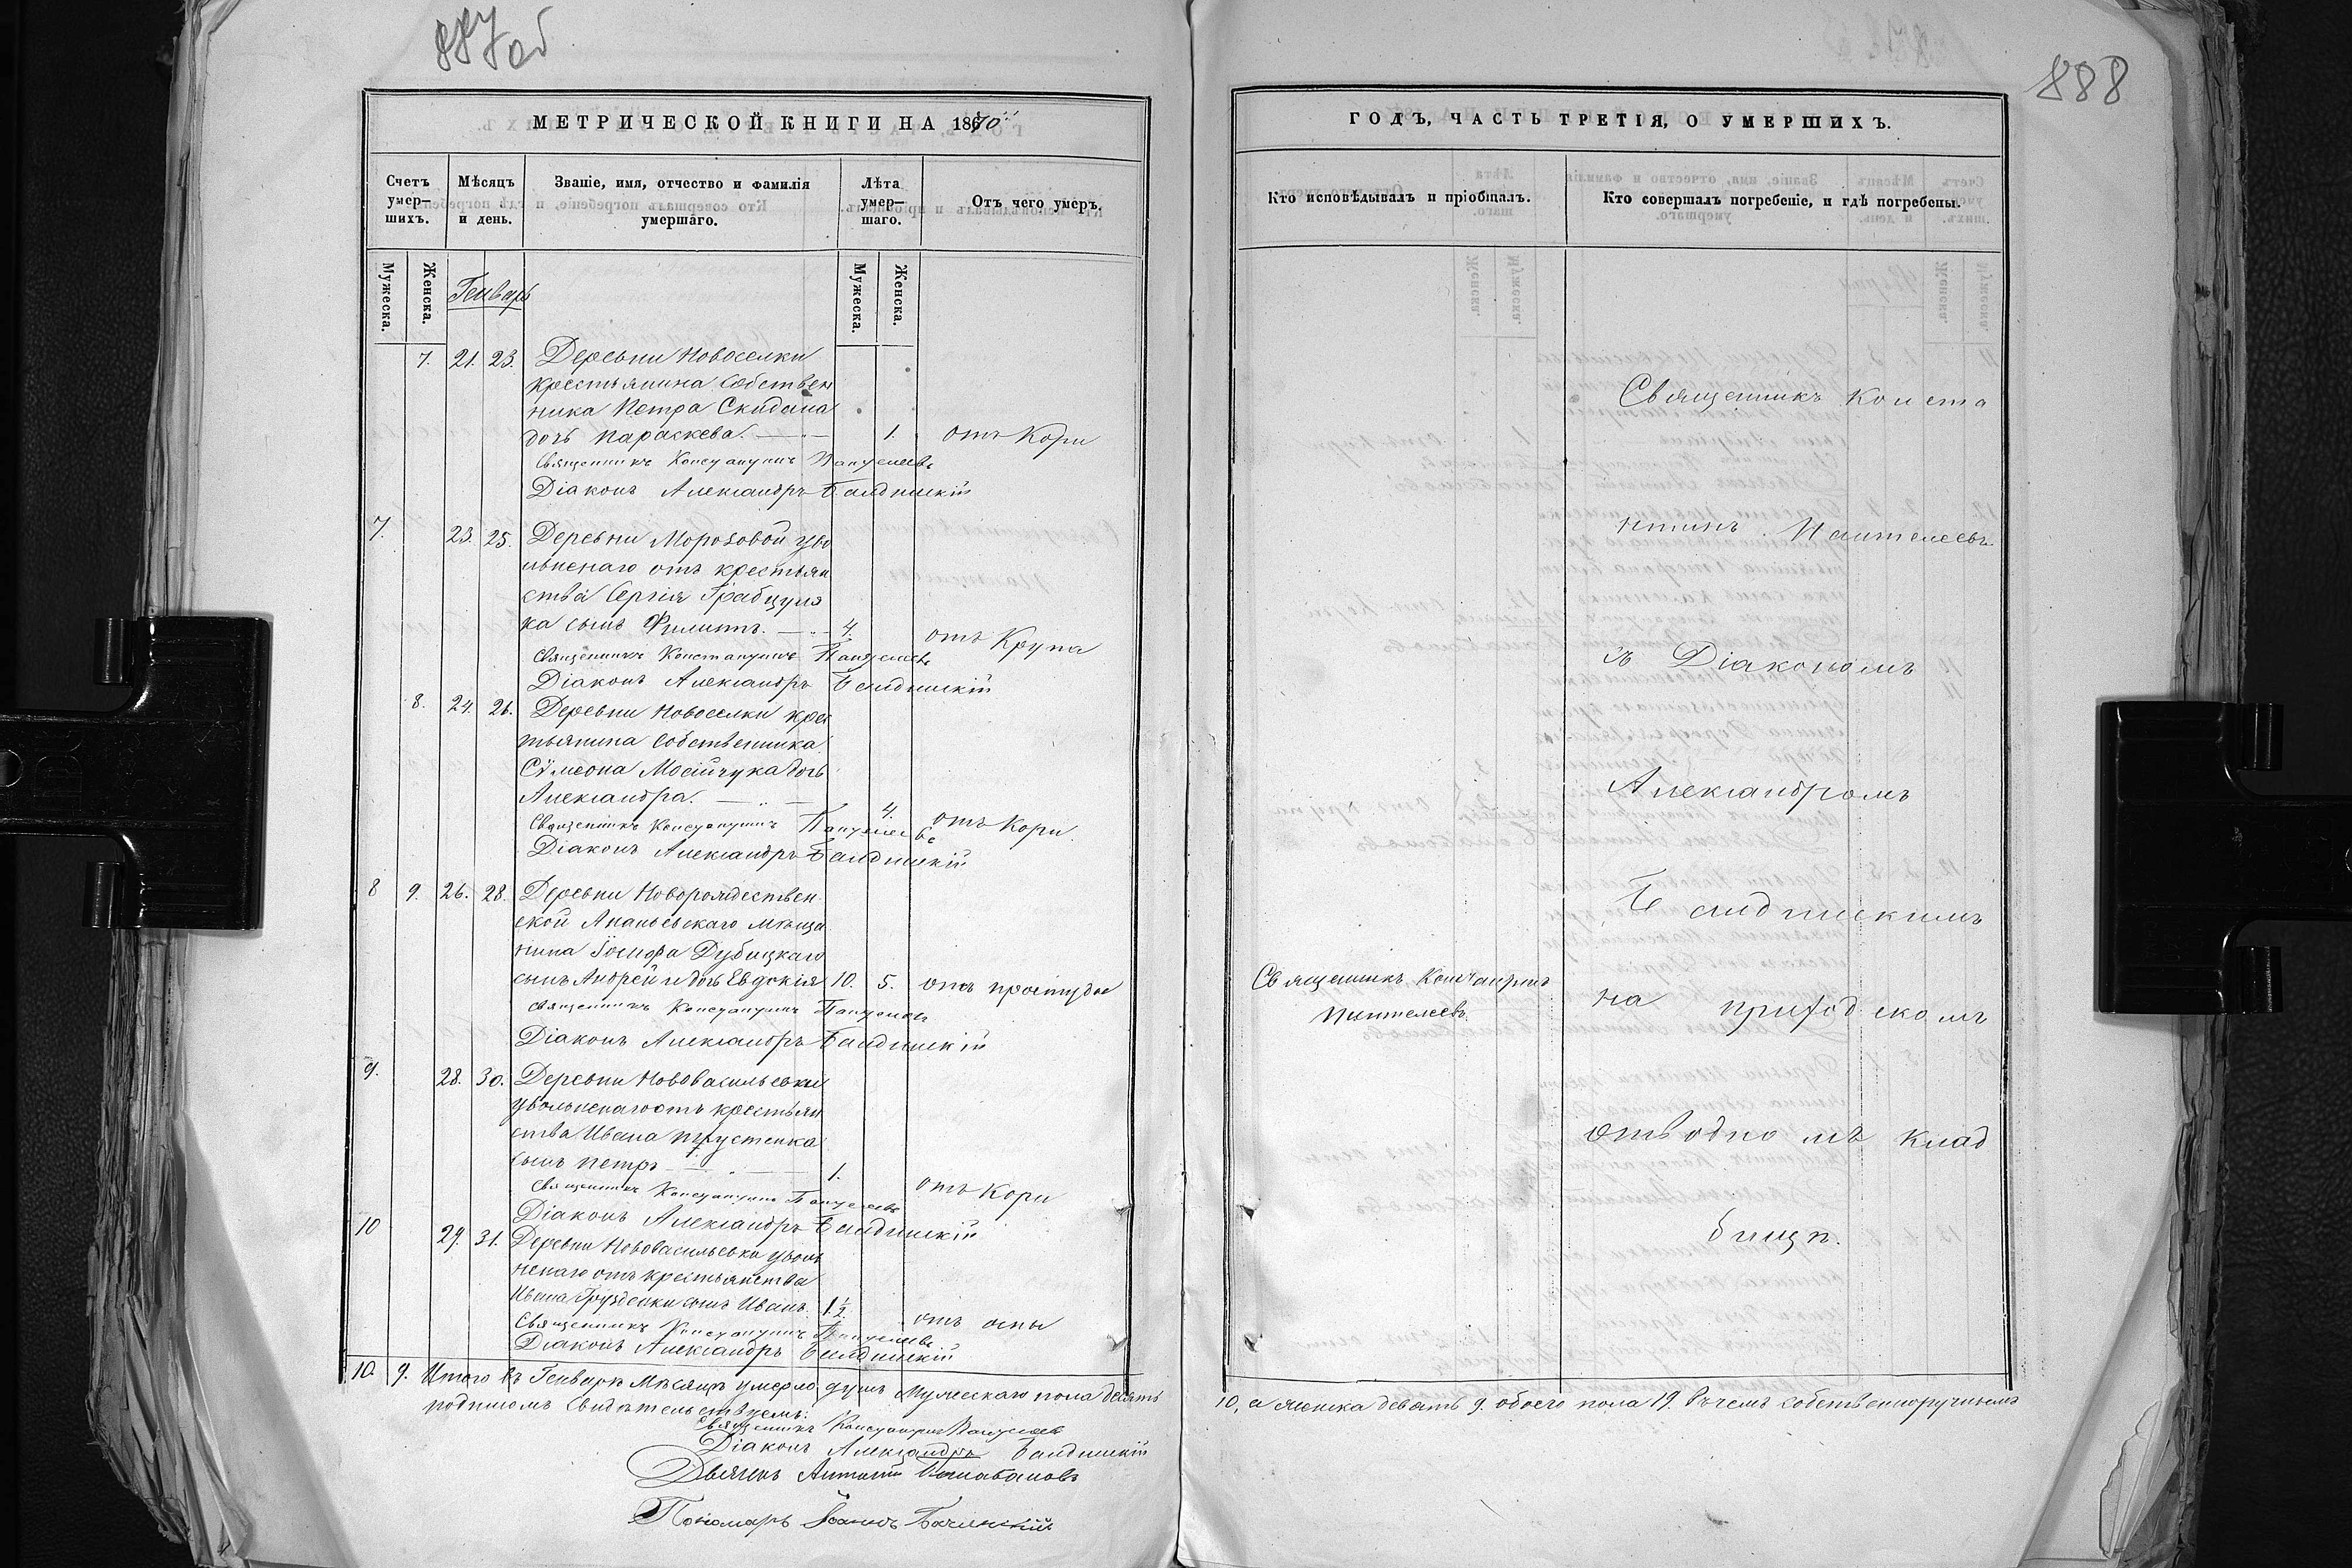 887 об
МЕТРИЧЕСКОЙ КНИГИ НА 1870
Счетъ умер-шихъ.
Мѣсяцъ и день.
Званіе, имя, отчество и фамилія умершаго.
Лѣта умер-шаго.
Отъ чего умеръ.
Мужеска.
Женска.
Генварь
Мужеска.
Женска.
7. 21. 23. Деревни Новоселки
крестьянина Собствен
ника Петра
дочь Параскева. 1. отъ Кори
Священникъ Константинъ Пантелеевъ
Діаконъ Александръ
7. 23. 25. Деревни Морозовой уво
льненаго отъ крестьян
ства Сергія
ка сынъ Филиппъ. 4. отъ Крупа
Священникъ Константинъ Пантелеевъ
Діаконъ Александръ
8. 24. 26. Деревни Новоселки крес
тьянина Собственника
Сѵмеона Мосійчука дочь
Александра. 4. отъ Кори
Священникъ Константинъ Пантелеевъ
Діаконъ Александръ
8 9. 26. 28. Деревни Новорождествен
ской Ананьевскаго мѣща
нина Іосифа Дубицкаго
сынъ Андрей и дочь Евдокія 10. 5. отъ простуды
Священникъ Константинъ Пантелеевъ
Діаконъ Александръ
9. 28. 30. Деревни Нововасильевки
увольненаго отъ крестьян
ства Ивана
сынъ Петръ 1. отъ Кори
Священникъ Константинъ Пантелеевъ
Діаконъ Александръ
10 29. 31. Деревни Нововасильевки уволь
ненаго отъ крестьянства
Ивана Грузденки сынъ Иванъ. 1 1/2 отъ оспы
Священникъ Константинъ Пантелеевъ
Діаконъ Александръ
10. 9. Итого въ Генварѣ Мѣсяцѣ умерло душъ Мужескаго пола десять
подписомъ Свидѣтельствуемъ:
Священникъ Константинъ Пантелеевъ
Діаконъ Александръ
Дьячекъ Антоній
Пономарь Іоаннъ
888
ГОДЪ, ЧАСТЬ ТРЕТІЯ, О УМЕРШИХЪ.
Кто исповѣдывалъ и пріобщалъ.
Кто совершалъ погребеніе, и гдѣ погребены.
Священникъ Конста
нтинъ Пантелеевъ
съ Діакономъ
Александромъ
Священникъ Константинъ
Пантелеевъ
на приходскомъ
отводномъ клад
бищѣ.
10, а женска девять 9. обоего пола 19. въ чемъ собственноручнымъ